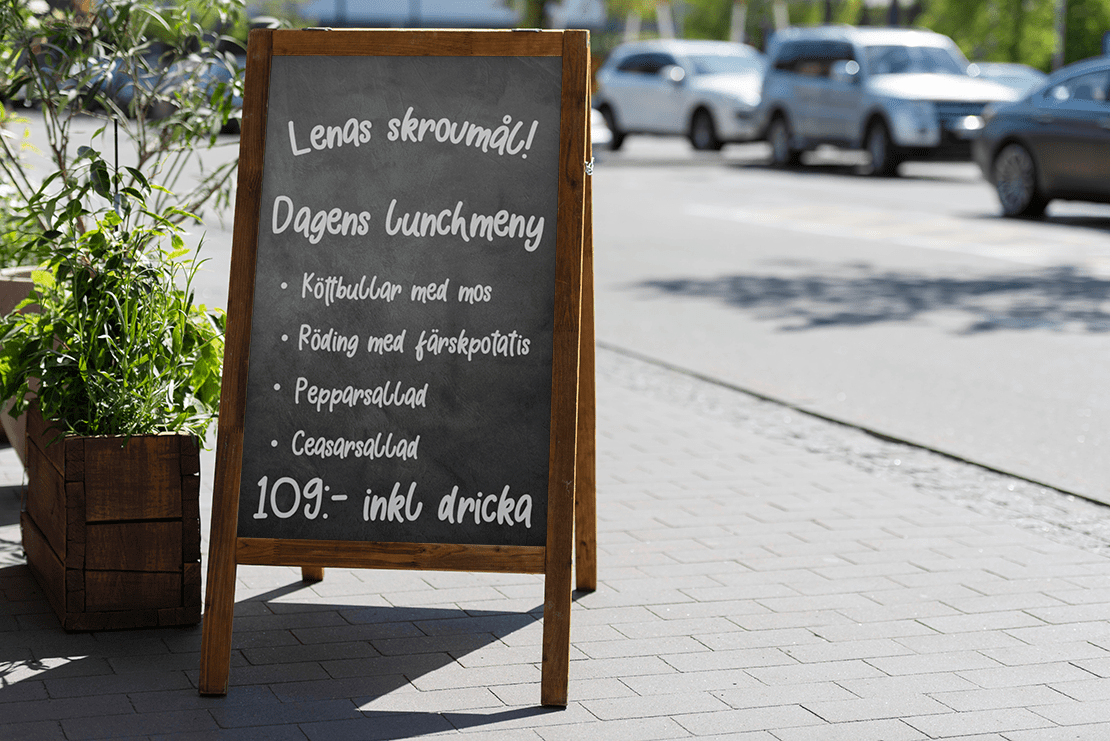 Lenas skrovmål!
Dagens lunchmeny
• Köttbullar med mos
• Röding med färskpotatis
• Pepparsallad
• Ceasarsallad
109:- inkl dricka